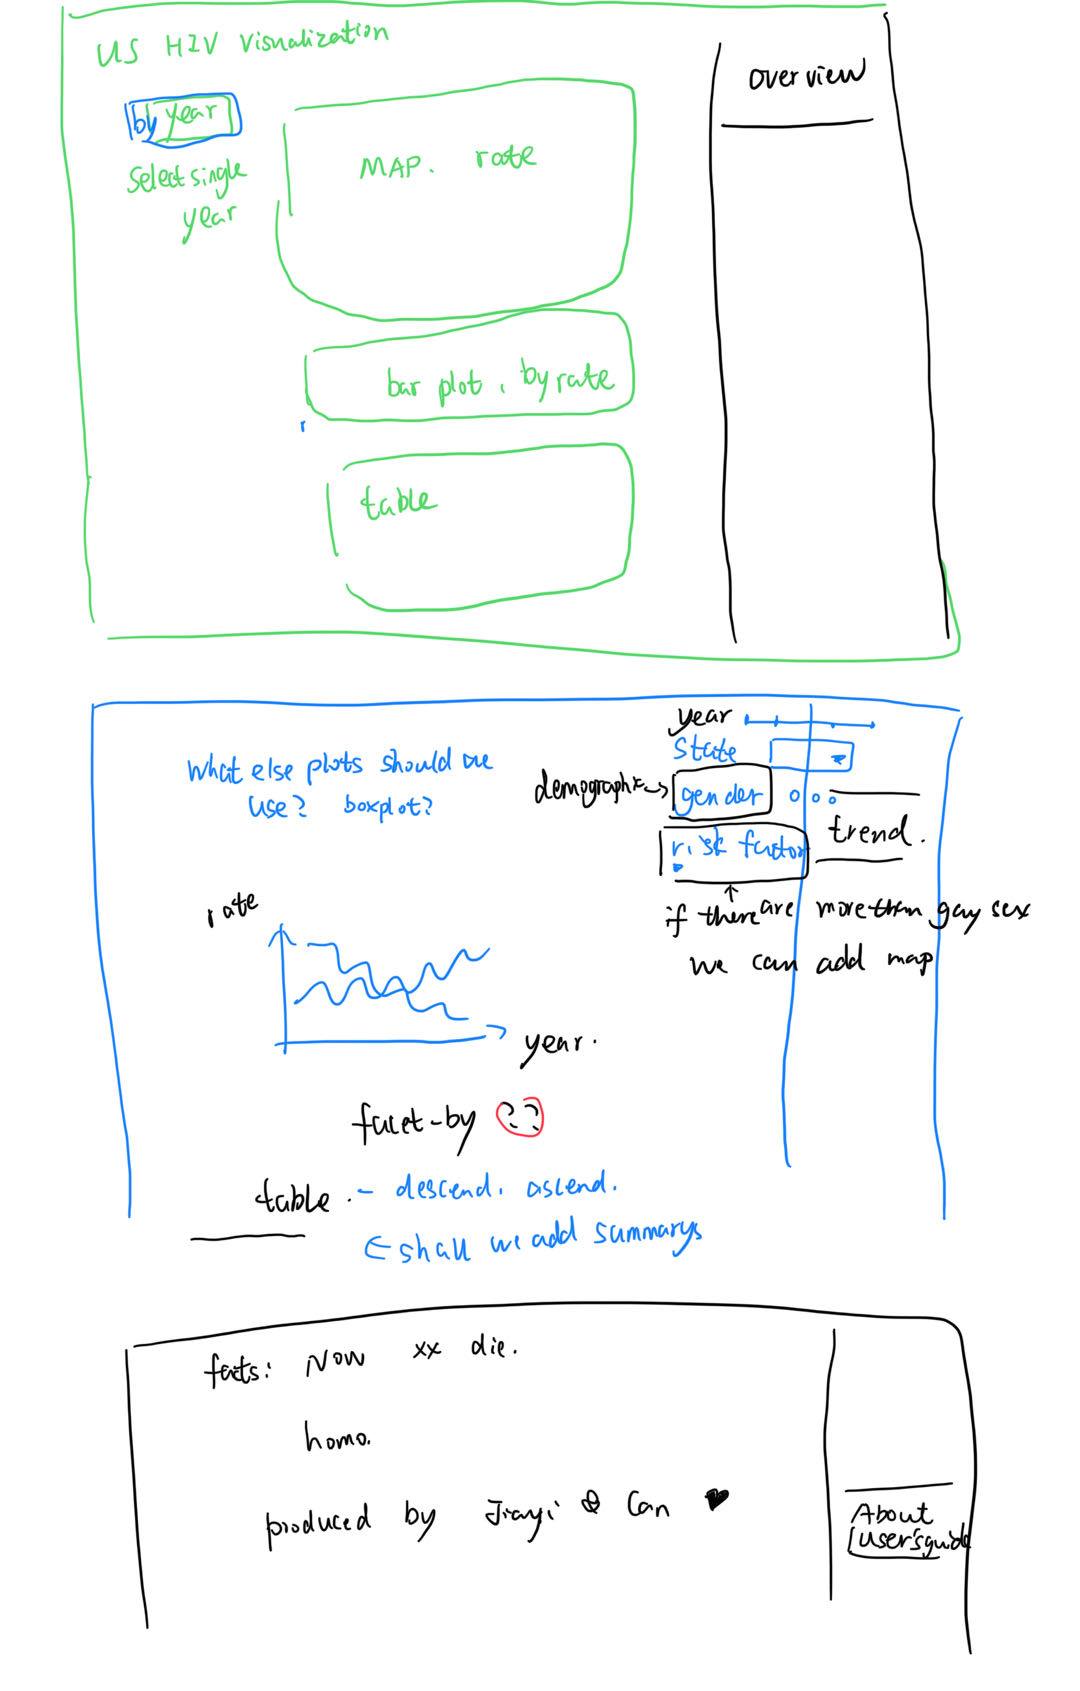 US HIV Visualization
overview
by year
Select single
year
MAP. rate
bar plot, by rate
table
year
What else plots should we
use? boxplot?
State
demographic
gender
risk factor
trend.
if there are more than gay sex
we can add map
rate
year.
facet-by ??
table. - descend. ascend.
shall we add summarys
facts: Now xx die.
homo.
produced by Jiayi & Can
About
User's guide